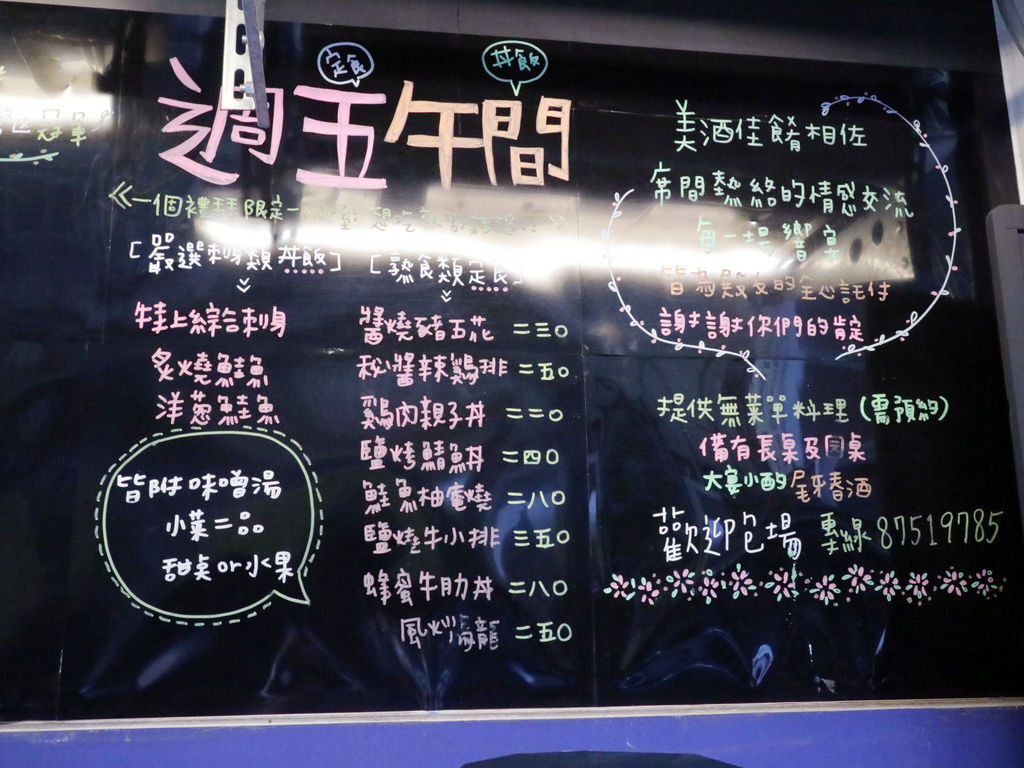 定食
丼飯
週五午間
冠軍
一個禮拜限定一
[嚴選刺身類丼飯]
[熟食類定食]
生上綜合刺身
炙燒鮭魚
洋蔥鮭魚
醬燒豬五花 二三〇
松醬辣鷄排 二五〇
鷄肉親子丼 二二〇
鹽烤鯖魚丼 二四〇
鮭魚柚庵燒 二八〇
鹽燒牛小排 三五〇
蜂蜜牛肋丼 二八〇
風炒烏龍 二五〇
皆附味噌湯
小菜二品
甜桌or水果
美酒佳餚相佐
席間熱絡的情感交流
每一場饗宴
皆為殿友的全心託付
謝謝你們的肯定
提供無菜單料理(需預約)
備有長桌及圓桌
大宴小酌尾牙春酒
歡迎包場 專線87519785